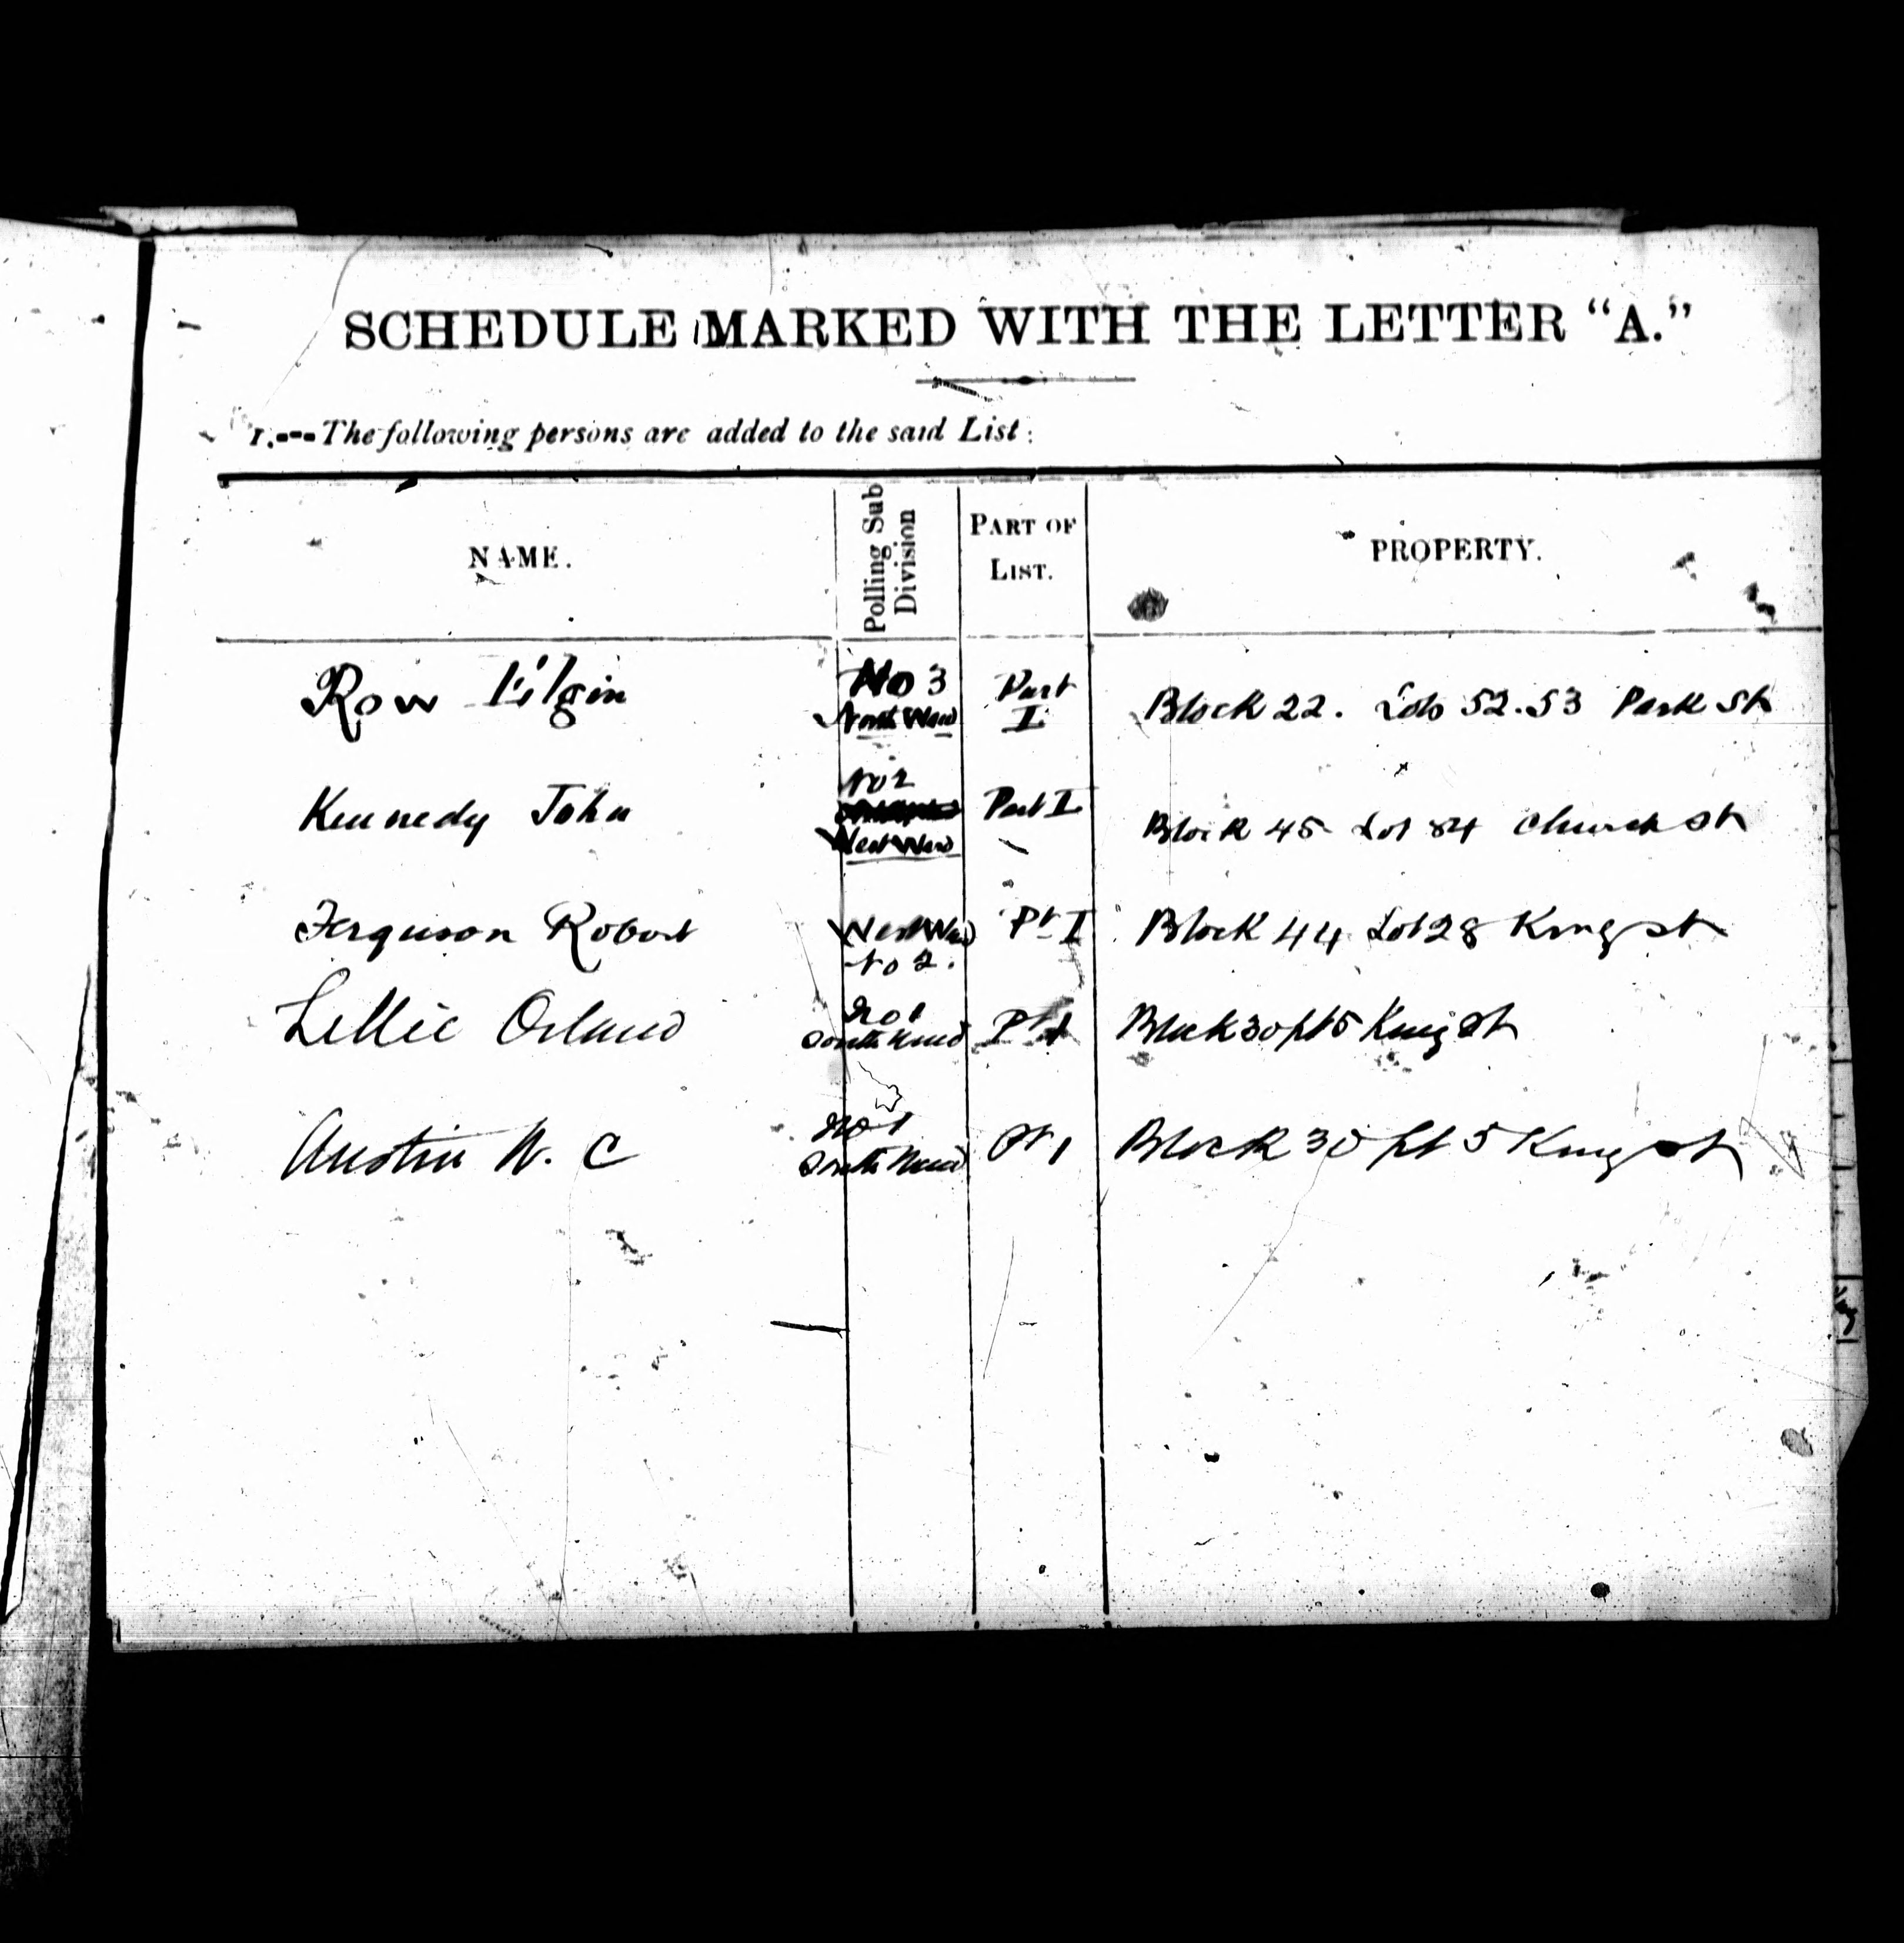 SCHEDULE MARKED WITH THE LETTER “A.”
1.---The following persons are added to the said List:
NAME.
Polling Sub Division
PART OF LIST.
PROPERTY.
Row Elgin No 3 North Ward Part I Block 22. Lots 52.53 Park St
Kennedy John No 2 West Ward Part I Block 45 Lot 84 Church St
Ferguson Robert West Ward No 2. Pt I Block 44 Lot 28 King St
Orland No 1 South Ward Pt 1 Block 30 pt 5 King St
Austin W. C No 1 South Ward Pt 1 Block 30 pt 5 King St